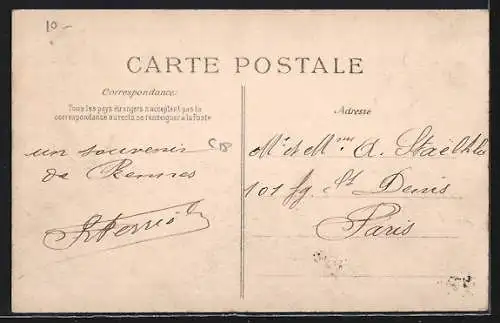 10-
CARTE POSTALE
Correspondance
Tous les pays étrangers n'acceptent pas la
correspondance au recto. Se renseigner à la Poste
Adresse
un souvenir
de Rennes
C18
Mr et Mme A.
101 fg. St Denis
Paris